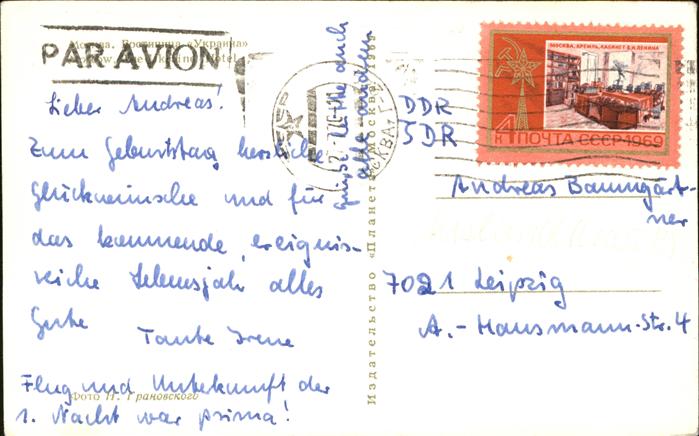 Москва. Гостиница «Украина»
PAR AVION
Lieber Andreas!
Zum Geburtstag herzliche
Glückwünsche und für
das kommende, ereignis-
reiche Lebensjahr alles
Gute
Tante Irene
Flug und Unterkunft der
Фото Н. Грановского
1. Nacht war prima!
alle anderen
Издательство «Планета» Москва 1969
МОСКВА
МОСКВА, КРЕМЛЬ, КАБИНЕТ В.И. ЛЕНИНА
4 К ПОЧТА СССР·1969
DDR
DDR
Andreas Baumgärt-
ner
7021 Leipzig
A.-Hausmann-Str. 4